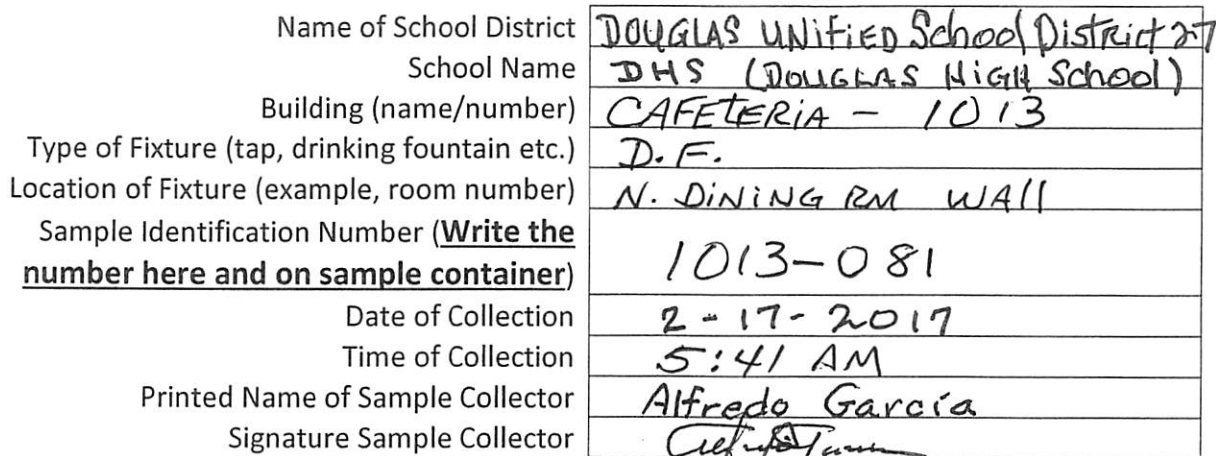 Name of School District DOUGLAS UNiFiED School District 27
School Name DHS (DOUGLAS HiGH School)
Building (name/number) CAFETERiA - 1013
Type of Fixture (tap, drinking fountain etc.) D.F.
Location of Fixture (example, room number) N. DiNiNG RM WAll
Sample Identification Number (Write the
number here and on sample container) 1013-081
Date of Collection 2-17-2017
Time of Collection 5:41 AM
Printed Name of Sample Collector Alfredo Garcia
Signature Sample Collector